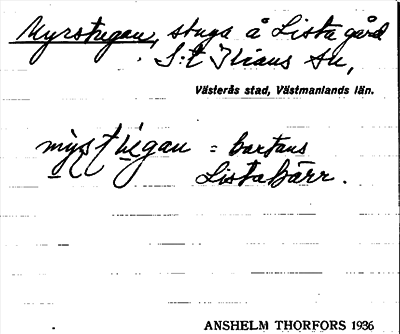 Myrstugan, stuga å Lista gård
S:t Ilians sn,
Västerås stad, Västmanlands län.
= kartans
Listakärr.
ANSHELM THORFORS 1936